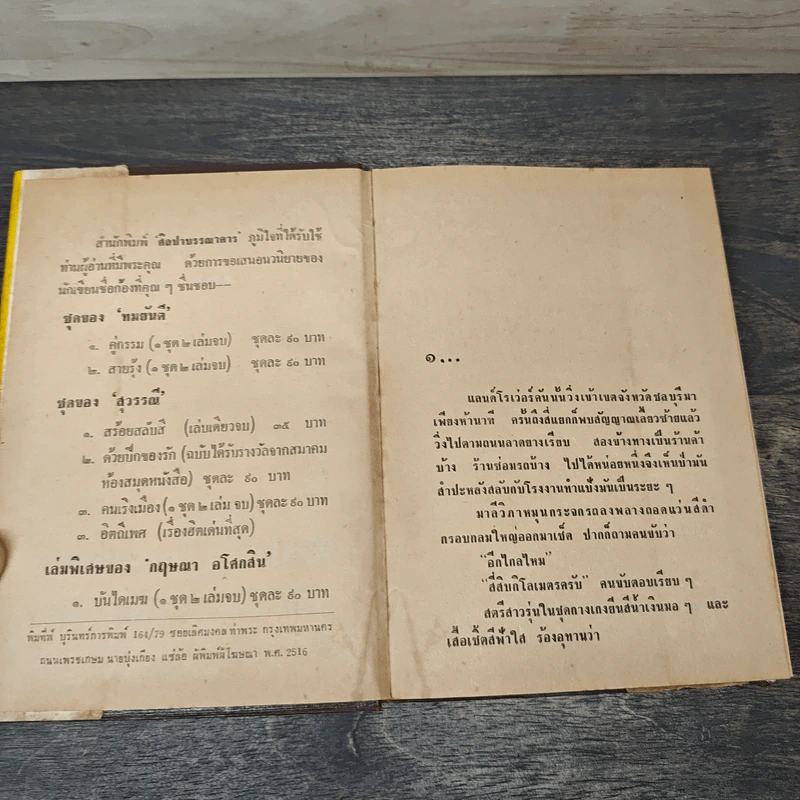 สำนักพิมพ์ 'ศิลปาบรรณาคาร' ภูมิใจที่ได้รับใช้
ท่านผู้อ่านที่มีพระคุณ ด้วยการขอเสนอนวนิยายของ
นักเขียนชื่อก้องที่คุณ ๆ ชื่นชอบ—
ชุดของ 'ทมยันตี'
๑. คู่กรรม (๑ ชุด ๒ เล่มจบ) ชุดละ ๙๐ บาท
๒. สายรุ้ง (๑ ชุด ๒ เล่มจบ) ชุดละ ๙๐ บาท
ชุดของ 'สุวรรณี'
๑. สร้อยสลับสี (เล่มเดียวจบ) ๓๕ บาท
๒. ด้วยปีกของรัก (ฉบับได้รับรางวัลจากสมาคม
ห้องสมุดหนังสือ) ชุดละ ๙๐ บาท
๓. คมเริงเมือง (๑ ชุด ๒ เล่ม จบ) ชุดละ ๙๐ บาท
๓. อิตถีเพศ (เรื่องฮิตเด่นที่สุด)
เล่มพิเศษของ 'กฤษณา อโศกสิน'
๑. บันไดเมฆ (๑ ชุด ๒ เล่มจบ) ชุดละ ๙๐ บาท
พิมพ์ที่ บุรินทร์การพิมพ์ 164/79 ซอยเลิศมงคล ท่าพระ กรุงเทพมหานคร
ถนนเพชรเกษม นายบุ่งเกียง แซ่ล้อ ผู้พิมพ์ผู้โฆษณา พ.ศ. 2516
๑...
แลนด์โรเวอร์คันนั้นวิ่งเข้าเขตจังหวัดชลบุรีมา
เพียงห้านาที ครั้นถึงสี่แยกก็พบสัญญาณเลี้ยวซ้ายแล้ว
วิ่งไปตามถนนลาดยางเรียบ สองข้างทางเป็นร้านค้า
บ้าง ร้านซ่อมรถบ้าง ไปได้หน่อยหนึ่งจึงเห็นป่ามัน
สำปะหลังสลับกับโรงงานทำแป้งมันเป็นระยะ ๆ
มาลีวิภาหมุนกระจกรถลงพลางถอดแว่นสีดำ
กรอบกลมใหญ่ออกมาเช็ด ปากก็ถามคนขับว่า
"อีกไกลไหม"
"สี่สิบกิโลเมตรครับ" คนขับตอบเรียบ ๆ
สตรีสาวรุ่นในชุดกางเกงยีนสีน้ำเงินมอ ๆ และ
เสื้อเชิ้ตสีฟ้าใส ร้องอุทานว่า